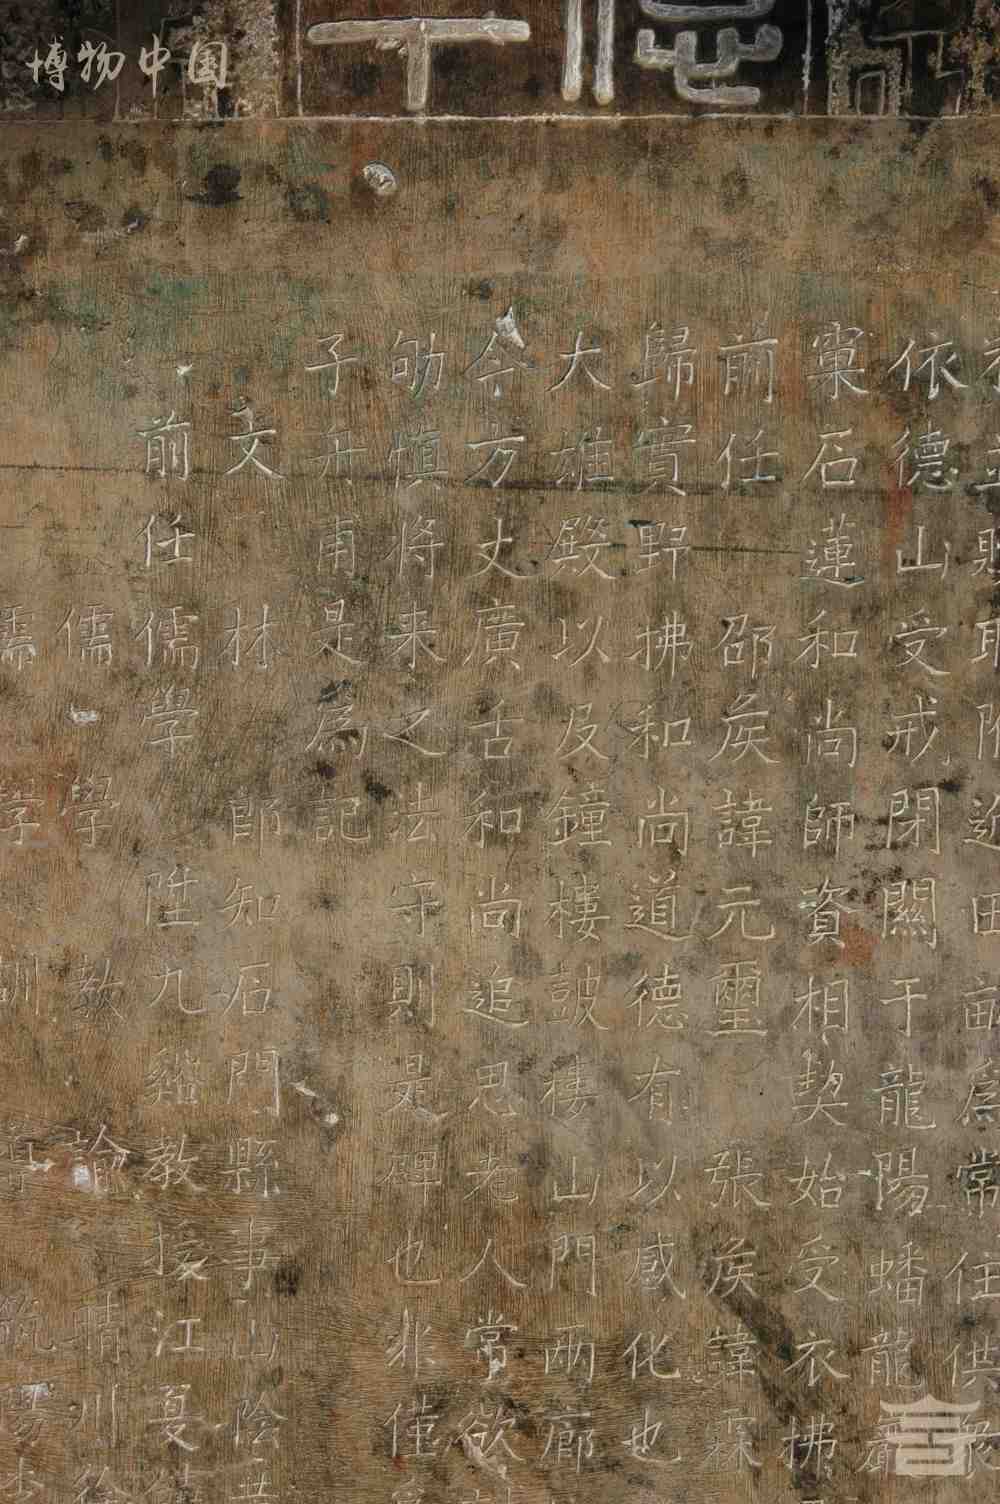 博物中国
耴附近田畝為常住供衆
依德山受戒閉關于龍陽蟠龍巖
窠石蓮和尚師資相契始受衣拂
前任邵侯諱元璽張侯諱霖
歸實野拂和尚道德有以感化也
大雄殿以及鐘樓鼓樓山門兩廊
今方丈廣舌和尚追思老人常欲
劬慎將来之法守則是碑也非僅
子舟甫是為記
文林郎知石門縣事山陰
前任儒學陞九谿教授江夏
儒學教諭晴川徐
儒學訓導